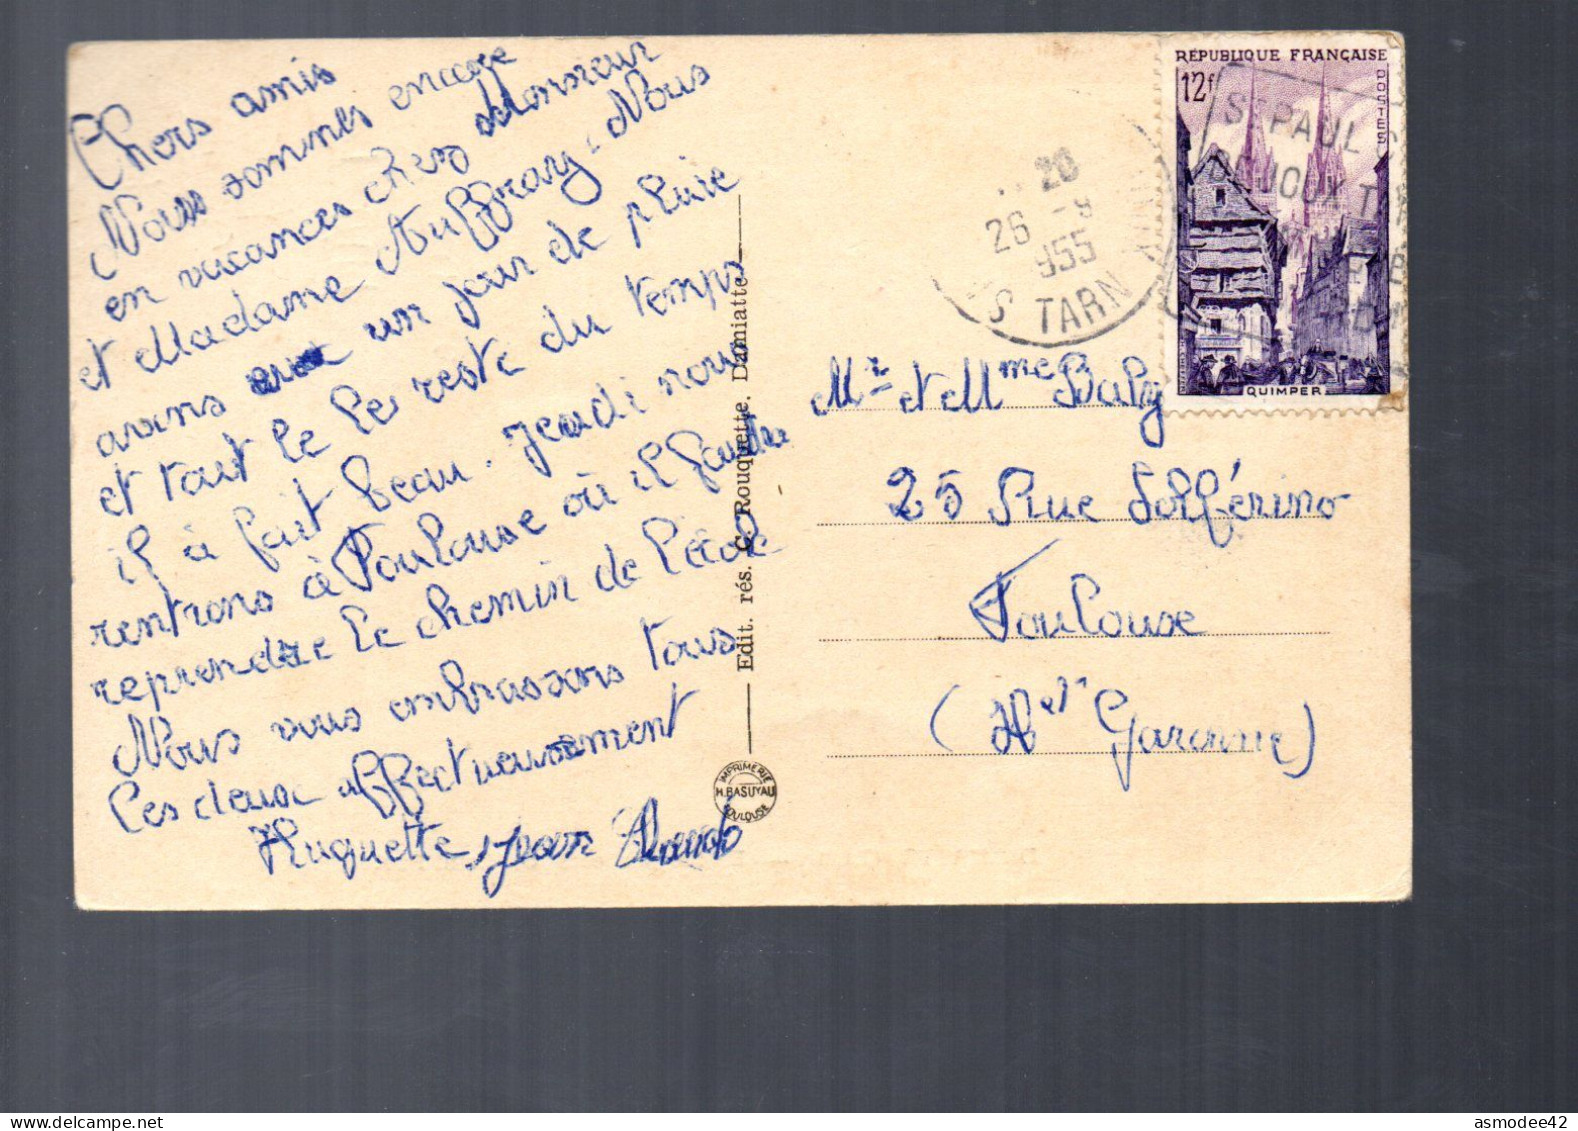 Chers amis
Nous sommes encore
en vacances chez Monsieur
et Madame Auffray. Nous
avons un jour de pluie
et tout le reste du temps
il à fait beau. Jeudi nous
rentrons à Toulouse où il faudra
reprendre le chemin de l'école
Nous vous embrassons tous
Les deux affectueusement
Huguette, Jean
Edit. rés. G. Rouquette, Damiatte
IMPRIMERIE
H. BASUYAU
TOULOUSE
RÉPUBLIQUE FRANÇAISE
12f
POSTES
QUIMPER
ST PAUL
DE JOUX T
20
26 -9
955
TARN
Mr et Mme
25 Rue Solférino
Toulouse
(Hte Garonne)
delcampe.net
asmodee42